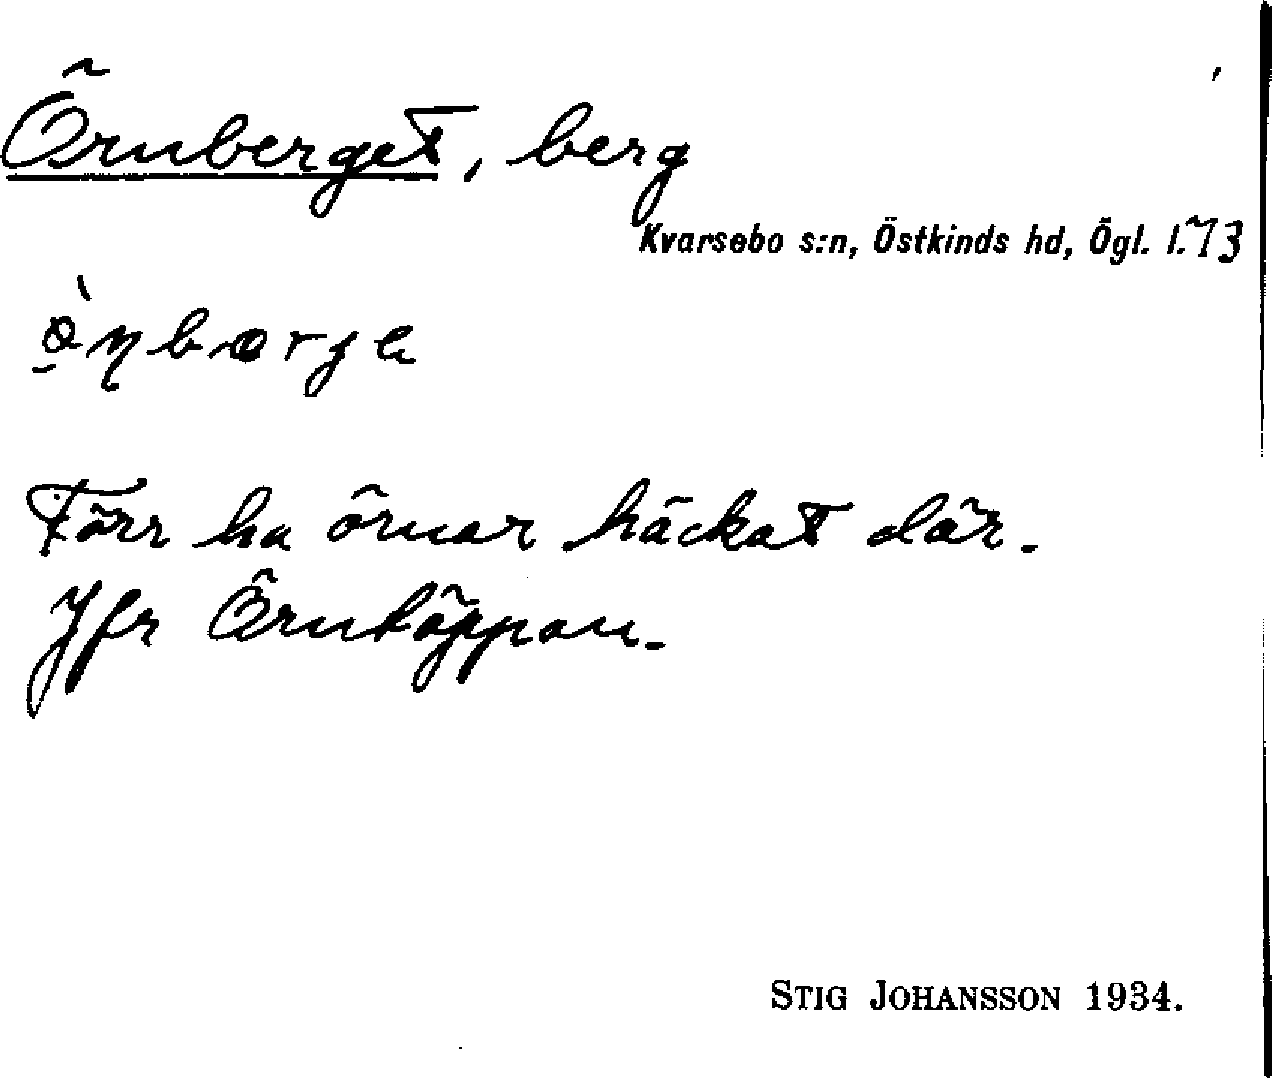 Örnberget, berg
Kvarsebo s:n, Östkinds hd, Ögl. l. 73
Förr ha örnar häckat där.
Jfr Örntöppan.
STIG JOHANSSON 1934.